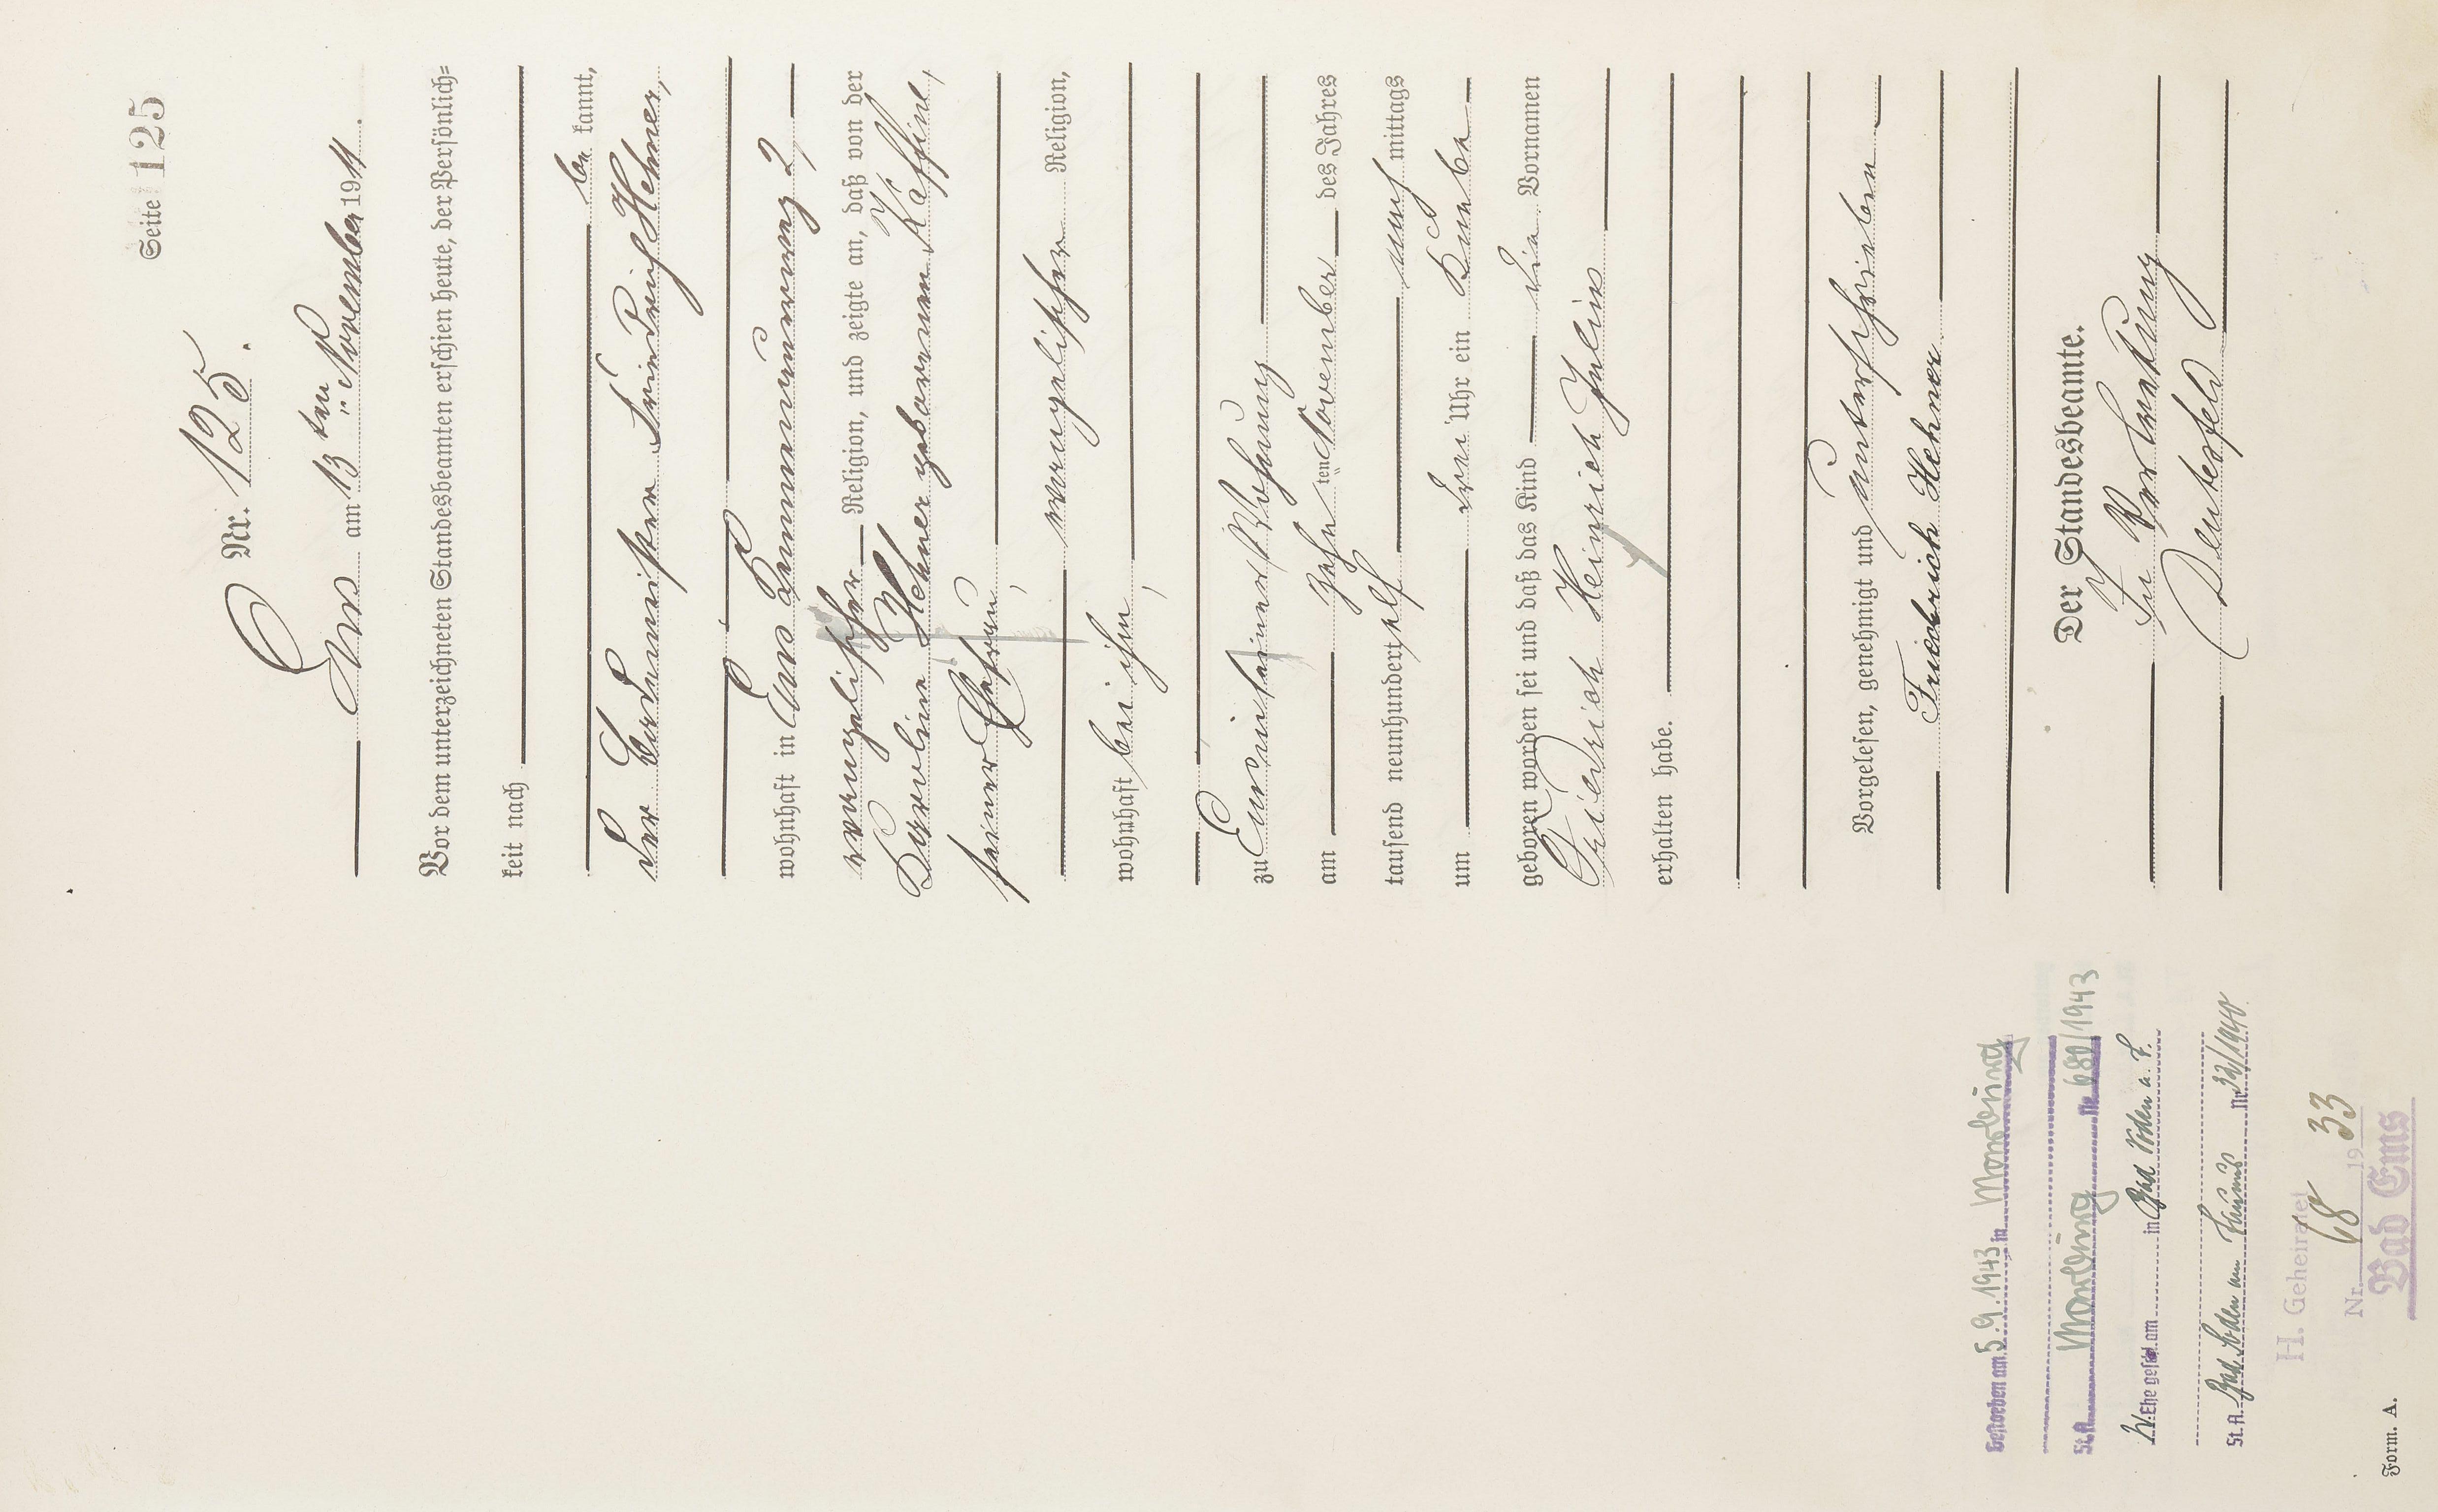 Seite 125
Nr. 125.
Ems am 13 ten November 1911.
Vor dem unterzeichneten Standesbeamten erschien heute, der Persönlich=
keit nach
be kannt,
der Friedrich Hehner,
wohnhaft in Ems 2,
evangelischer Religion, und zeigte an, daß von der
Karoline Hehner geborenen
seiner Ehefrau,
evangelischer Religion,
wohnhaft bei ihm,
zu Ems in seiner Wohnung
am zehn ten November des Jahres
tausend neunhundert elf nach mittags
um drei Uhr ein Knabe
geboren worden sei und daß das Kind die Vornamen
Friedrich Heinrich Julius
erhalten habe.
Vorgelesen, genehmigt und unterschrieben
Friedrich Hehner
Der Standesbeamte.
In Vertretung
Gestorben am 5.9.1943 in Marburg
St.A. Marburg Nr. 680/1943
Ehe geschl. am in Bad Soden a. T.
St. A. Bad Soden am Taunus Nr. 32/1940
H. Geheiratet
Nr. 68 1933
Bad Ems
Form. A.